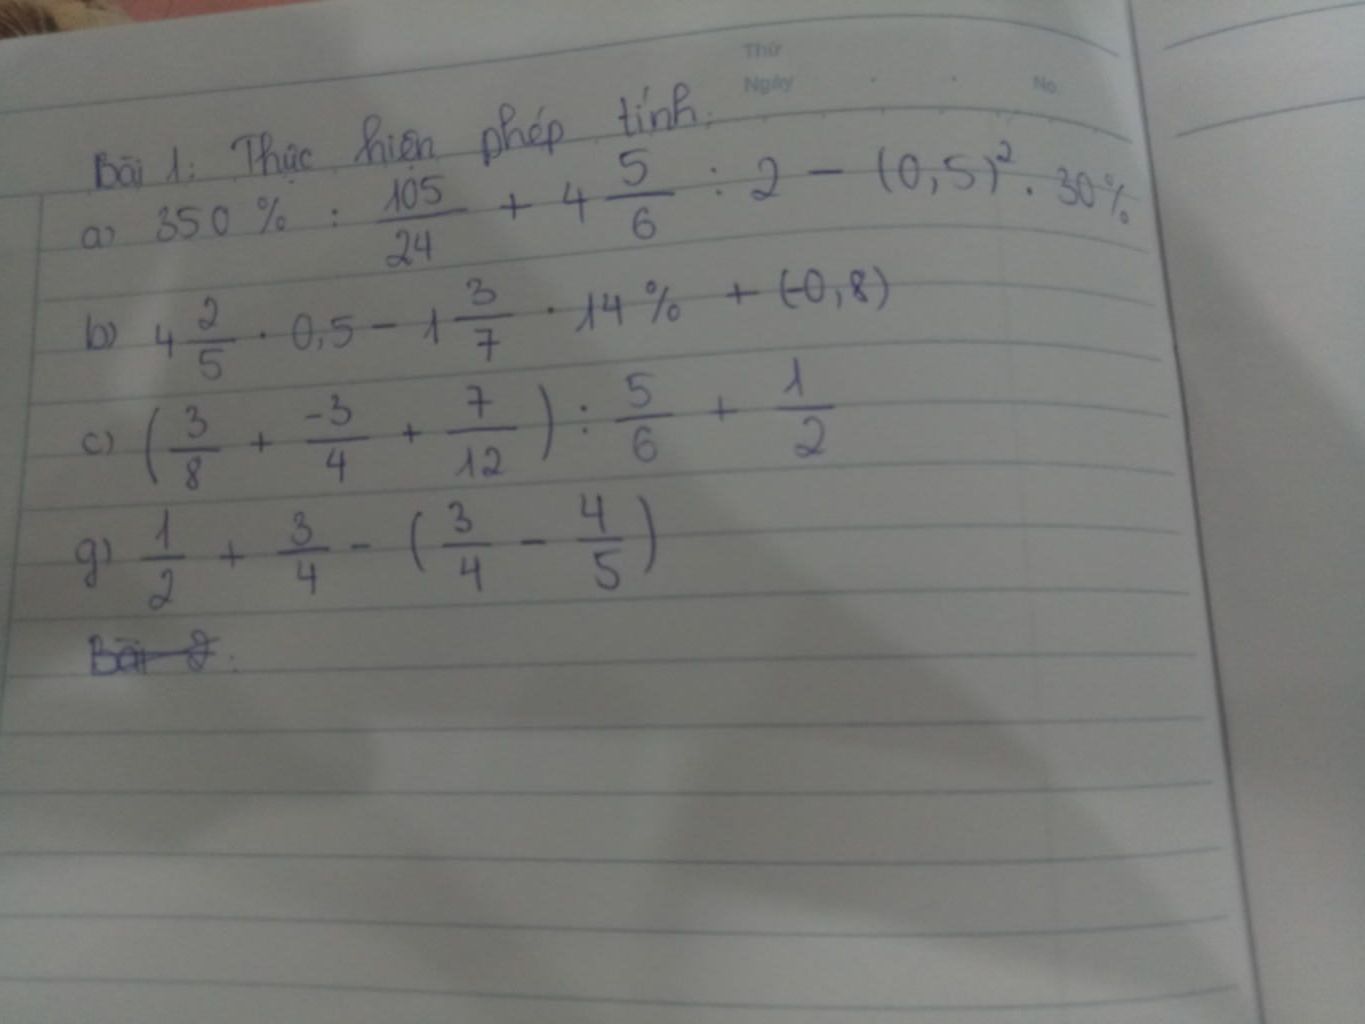 Thứ
Ngày . . No.
Bài 1: Thực hiện phép tính.
a) 350% : 105/24 + 4 5/6 : 2 - (0,5)² . 30%
b) 4 2/5 . 0,5 - 1 3/7 . 14% + (-0,8)
c) (3/8 + -3/4 + 7/12) : 5/6 + 1/2
g) 1/2 + 3/4 - (3/4 - 4/5)
Bài 2: